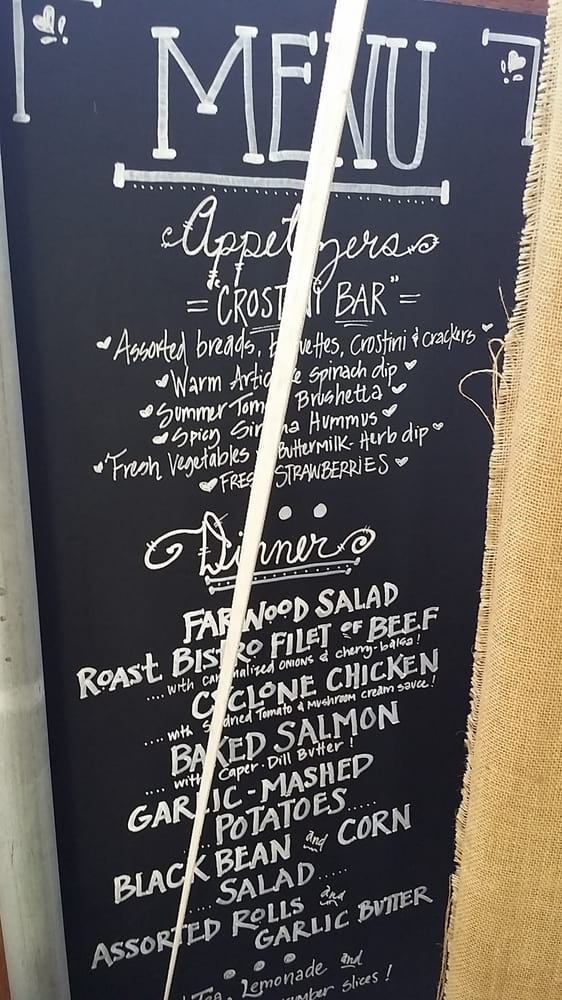 MENU
Appetizers
"the CROSTINI BAR"
Assorted breads, baguettes, Crostini & Crackers
Warm Artichoke Spinach dip
Summer Tomato Brushetta
Spicy Sriracha Hummus
Fresh Vegetables Buttermilk-Herb dip
FRESH STRAWBERRIES
Dinner
FARMWOOD SALAD
ROAST BISTRO FILET OF BEEF
....with carmalized onions & cherry-balsa!
CYCLONE CHICKEN
....with Sundried Tomato & Mushroom cream sauce!
BAKED SALMON
....with Caper-Dill Butter!
GARLIC-MASHED
....POTATOES.....
BLACK BEAN and CORN
....SALAD.....
ASSORTED ROLLS and
GARLIC BUTTER
Tea, Lemonade and
slices!